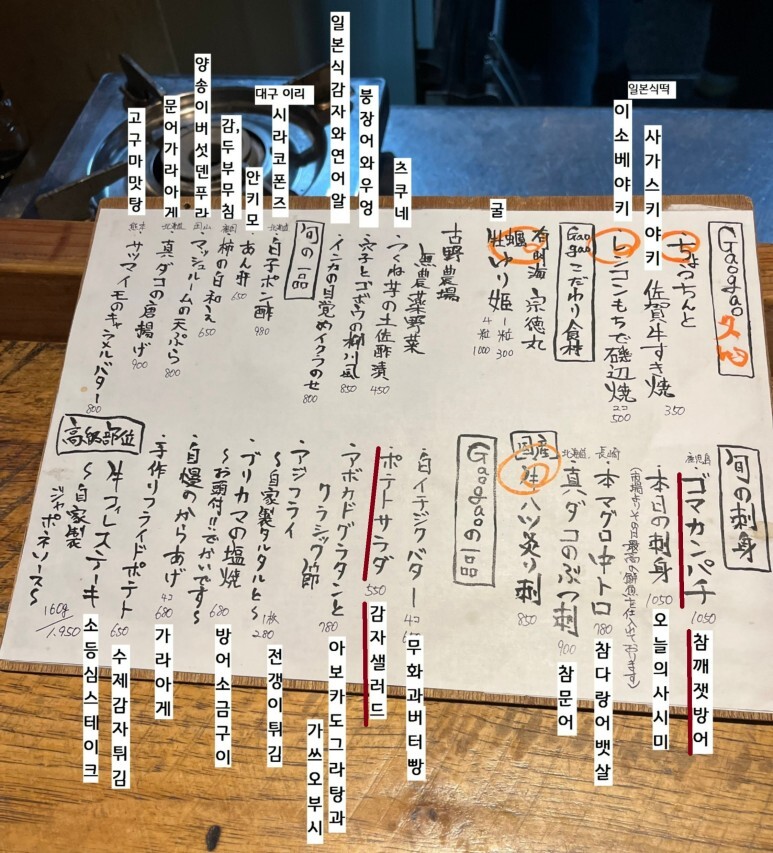 일본식떡
사가스키야키
이소베야키
굴
츠쿠네
붕장어와우엉
일본식감자와연어알
대구 이리
시라코폰즈
안키모
감,두부무침
양송이버섯덴푸라
문어가라아게
고구마맛탕
Gaogao
・ちょっちんと
佐賀牛すき焼
350
・レンコンもちで磯辺焼
2コ
500
Gaogaoこだわり食材
有明海 宗徳丸
牡蠣 ゆり姫
1粒 300
4粒 1000
古野農場
無農薬野菜
・つくね芋の土佐酢漬
450
・穴子とゴボウの柳川風
850
・インカの目覚めイクラのせ
800
旬の一品
北海道
・白子ポン酢
980
・あん肝
650
・柿の白和え
650
岡山
・マッシュルームの天ぷら
800
北海道
・真ダコの唐揚げ
900
熊本
・サツマイモのキャラメルバター
800
旬の刺身
鹿児島
ゴマカンパチ
1050
・本日の刺身
1050
(市場よりその日最高の鮮魚を仕入れております)
長崎
・本マグロ中トロ
780
北海道
・真ダコのぶつ刺
900
国産
・生ハツ炙り刺
850
Gaogaoの一品
・白イチジクバター
4コ
・ポテトサラダ
550
・アボカドグラタンと
クラシック節
780
・アジフライ
〜自家製タルタルと〜
1枚
280
・ブリカマの塩焼
〜お頭付!!でかいです〜
680
・自慢のからあげ
4コ
680
・手作りフライドポテト
650
高級部位
・牛フィレステーキ
〜自家製
ジャポネソース〜
160g/1.950
참깨잿방어
오늘의사시미
참다랑어뱃살
참문어
무화과버터빵
감자샐러드
아보카도그라탕과
가쓰오부시
전갱이튀김
방어소금구이
가라아게
수제감자튀김
소등심스테이크